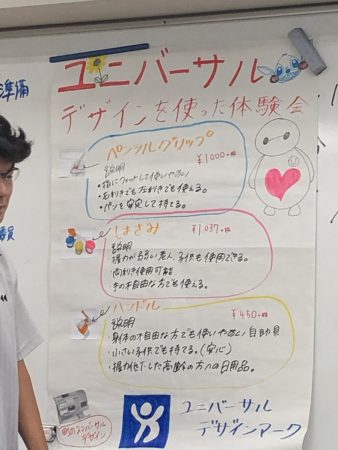 準備
ユニバーサル
デザインを使った体験会
ペンシルグリップ
¥1000+税
説明
・指にフィットして使いやすい
・右利きでも左利きでも使える。
・ペンを安定して持てる。
はさみ
¥1037+税
説明
・握力が弱い老人、子供も使用できる。
・両利き使用可能
・手の不自由な方でも使える。
ハンドル
¥450+税
説明
・身体の不自由な方でも使いやすい自助具
・小さい子供でも持てる。(安心)
・握力低下した高齢の方への日用品。
ユニバーサル
デザイン
ユニバーサル
デザインマーク